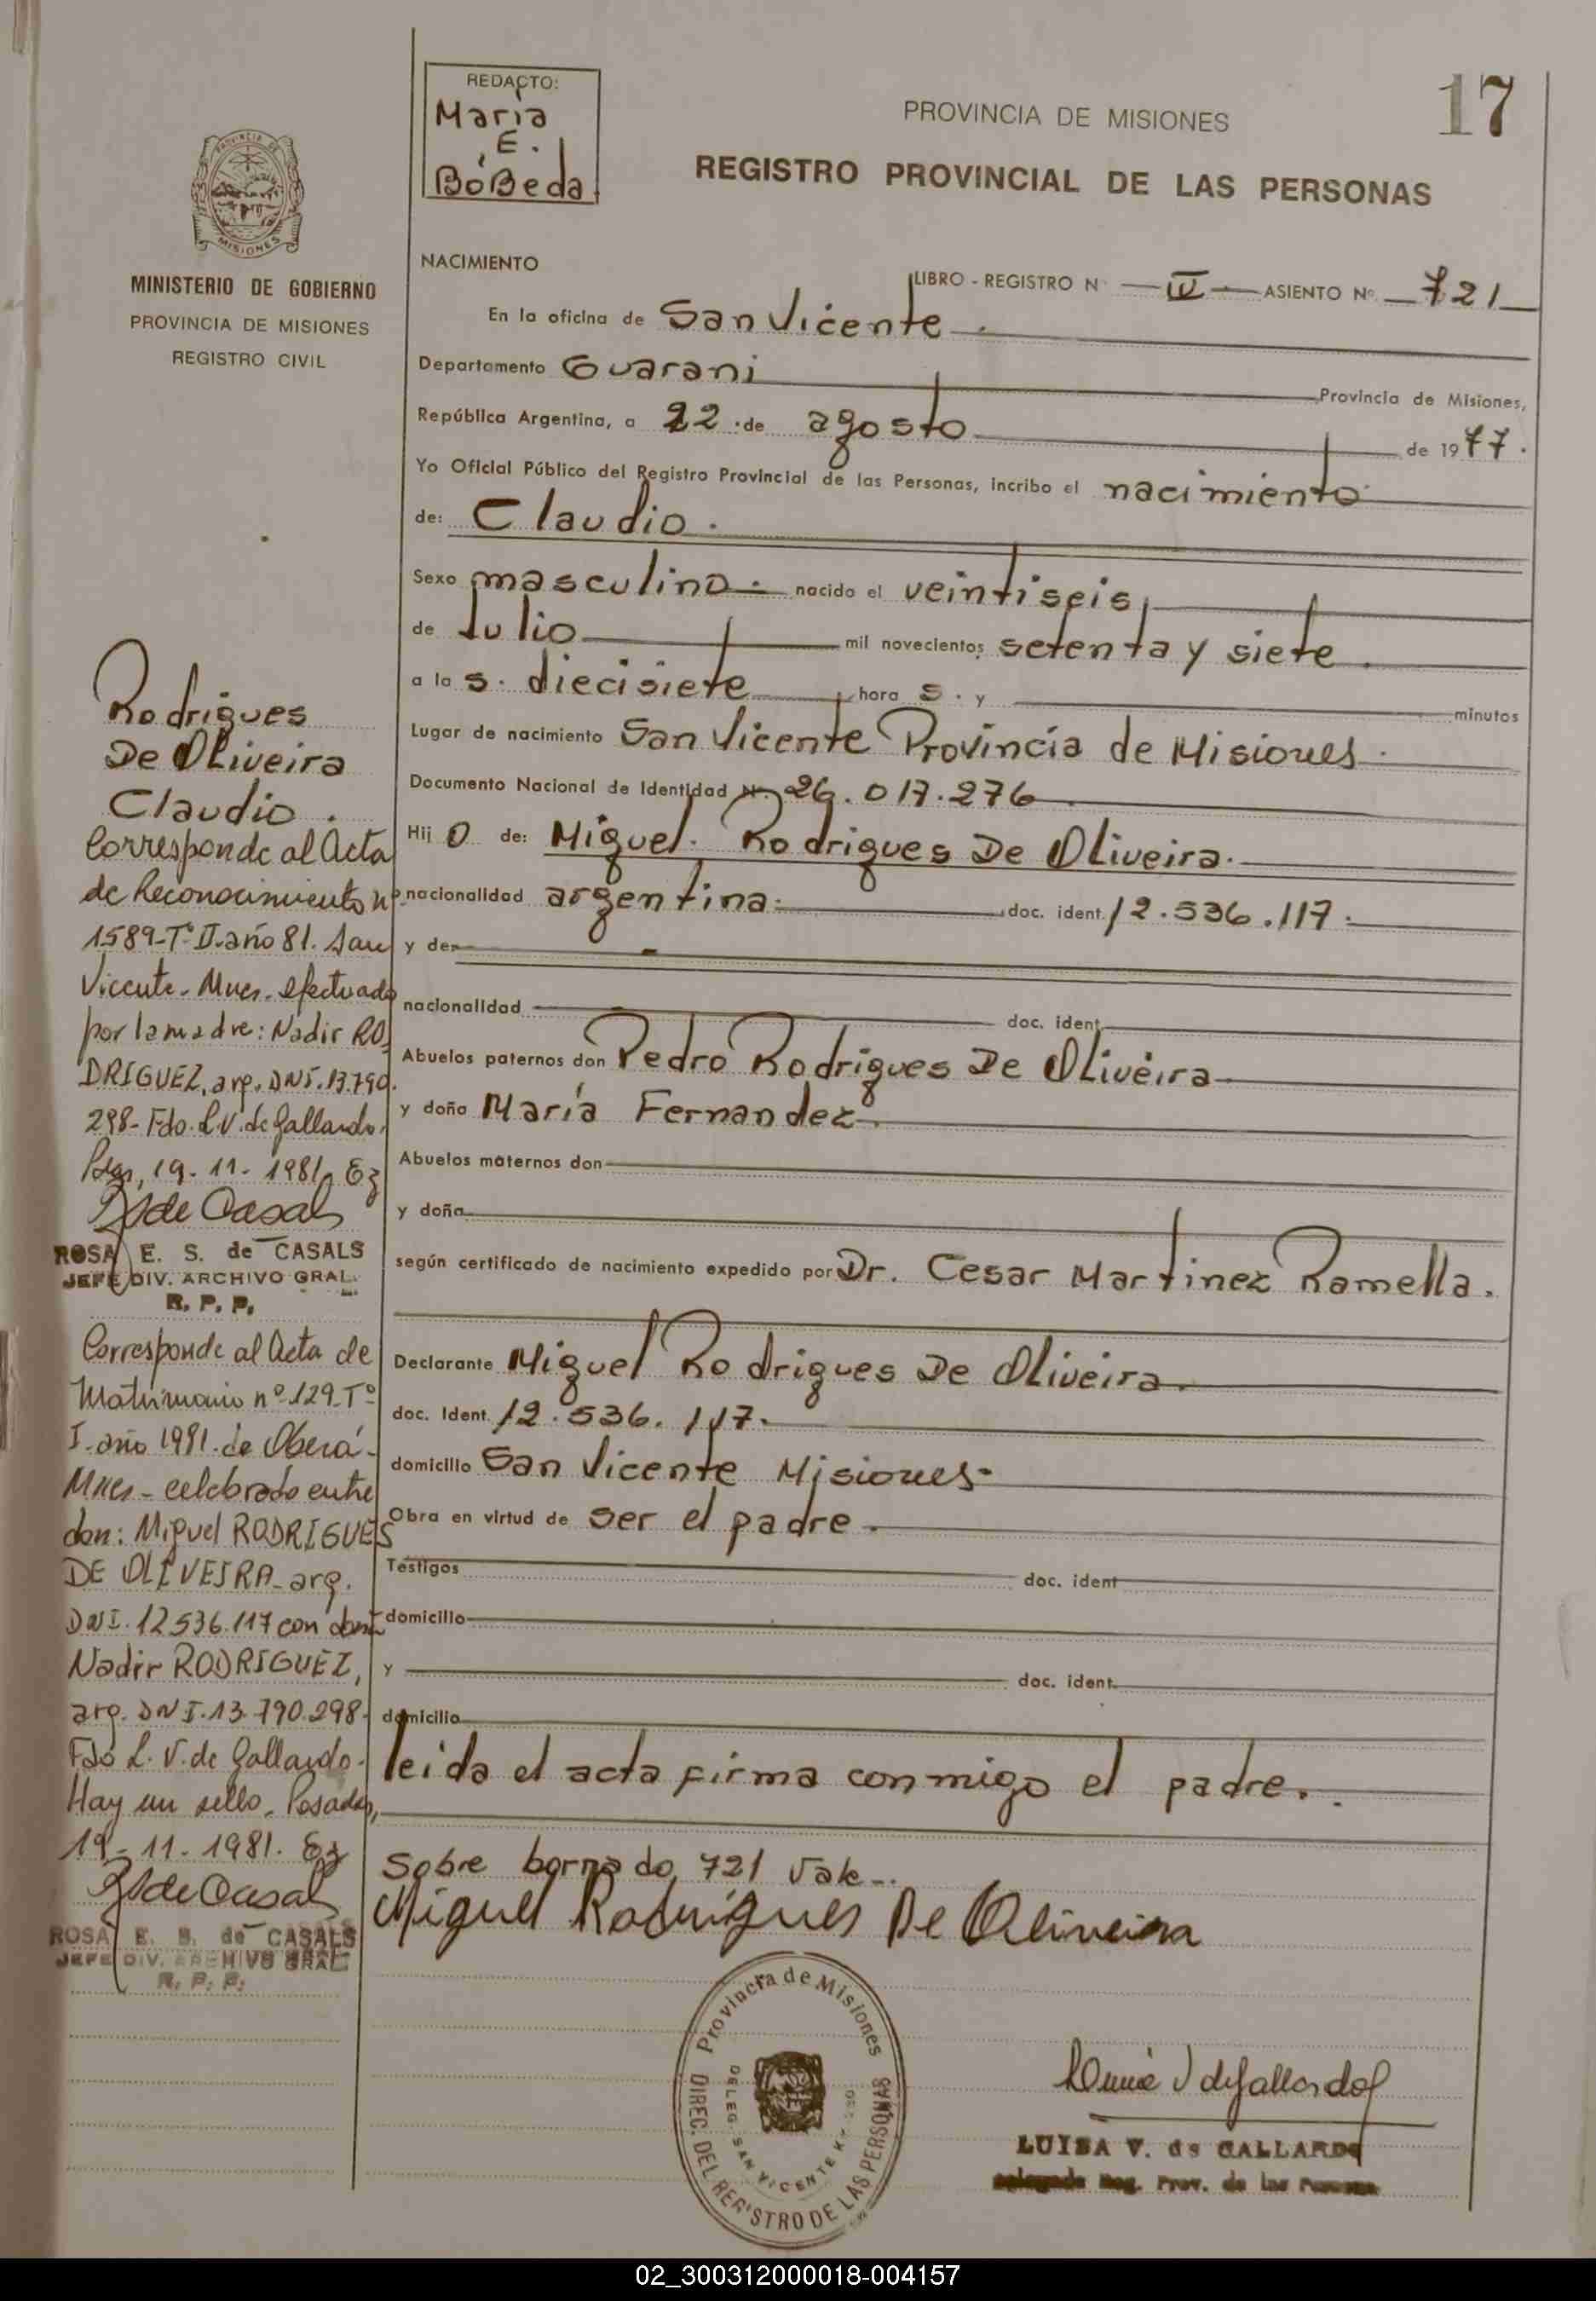 REDACTO:
Maria
E.
BóBeda
17
PROVINCIA DE MISIONES
REGISTRO PROVINCIAL DE LAS PERSONAS
PROVINCIA DE
MISIONES
MINISTERIO DE GOBIERNO
PROVINCIA DE MISIONES
REGISTRO CIVIL
NACIMIENTO
LIBRO - REGISTRO N° — IV — ASIENTO N° — 721 —
En la oficina de San Vicente.
Departamento Guarani Provincia de Misiones,
República Argentina, a 22 de agosto de 1977.
Yo Oficial Público del Registro Provincial de las Personas, incribo el nacimiento
de: Claudio.
Sexo masculino nacido el veintiseis
de Julio mil novecientos setenta y siete.
a las. diecisiete hora s. y minutos
Lugar de nacimiento San Vicente Provincia de Misiones.
Documento Nacional de Identidad N°. 26.017.276.
Hij o de: Miguel. Rodrigues De Oliveira.
nacionalidad argentina. doc. ident. 12.536.117.
y de
nacionalidad doc. ident.
Abuelos paternos don Pedro Rodrigues De Oliveira
y doña María Fernandez.
Abuelos maternos don
y doña
según certificado de nacimiento expedido por Dr. Cesar Martinez Ramella.
Declarante Miguel Rodrigues De Oliveira.
doc. Ident. 12.536.117.
domicilio San Vicente Misiones-
Obra en virtud de ser el padre.
Testigos doc. ident
domicilio
y doc. ident.
domicilio
leida el acta firma conmigo el padre.
Sobre borrado 721 Vale..
Miguel Rodrigues De Oliveira
Rodrigues
De Oliveira
Claudio.
Corresponde al Acta
de Reconocimiento nº
1589-Tº II-año 81. San
Vicente-Mnes-efectuado
por la madre: Nadir RO
DRIGUEZ, arg. DNI.13.790.
298-Fdo. L.V. de Gallardo.
Pdas, 19-11-1981. Ez
RSde Casals
ROSA E. S. de CASALS
JEFE DIV. ARCHIVO GRAL.
R. P. P.
Corresponde al Acta de
Matrimonio nº 129-Tº
I-año 1981. de Oberá-
Mnes-celebrado entre
don: Miguel RODRIGUES
DE OLIVEIRA-arg.
DNI.12.536.117 con doña
Nadir RODRIGUEZ,
arg. DNI.13.790.298.
Fdo L.V. de Gallardo.
Hay un sello. Posadas,
19-11-1981. Ez
RSde Casals
ROSA E. S. de CASALS
JEFE DIV. ARCHIVO GRAL.
R. P. P.
Provincia de Misiones
DIREC. DEL REGISTRO DE LAS PERSONAS
DELEG. SAN VICENTE
LUISA V. de GALLARDO
Delegada Reg. Prov. de las Personas
02_300312000018-004157